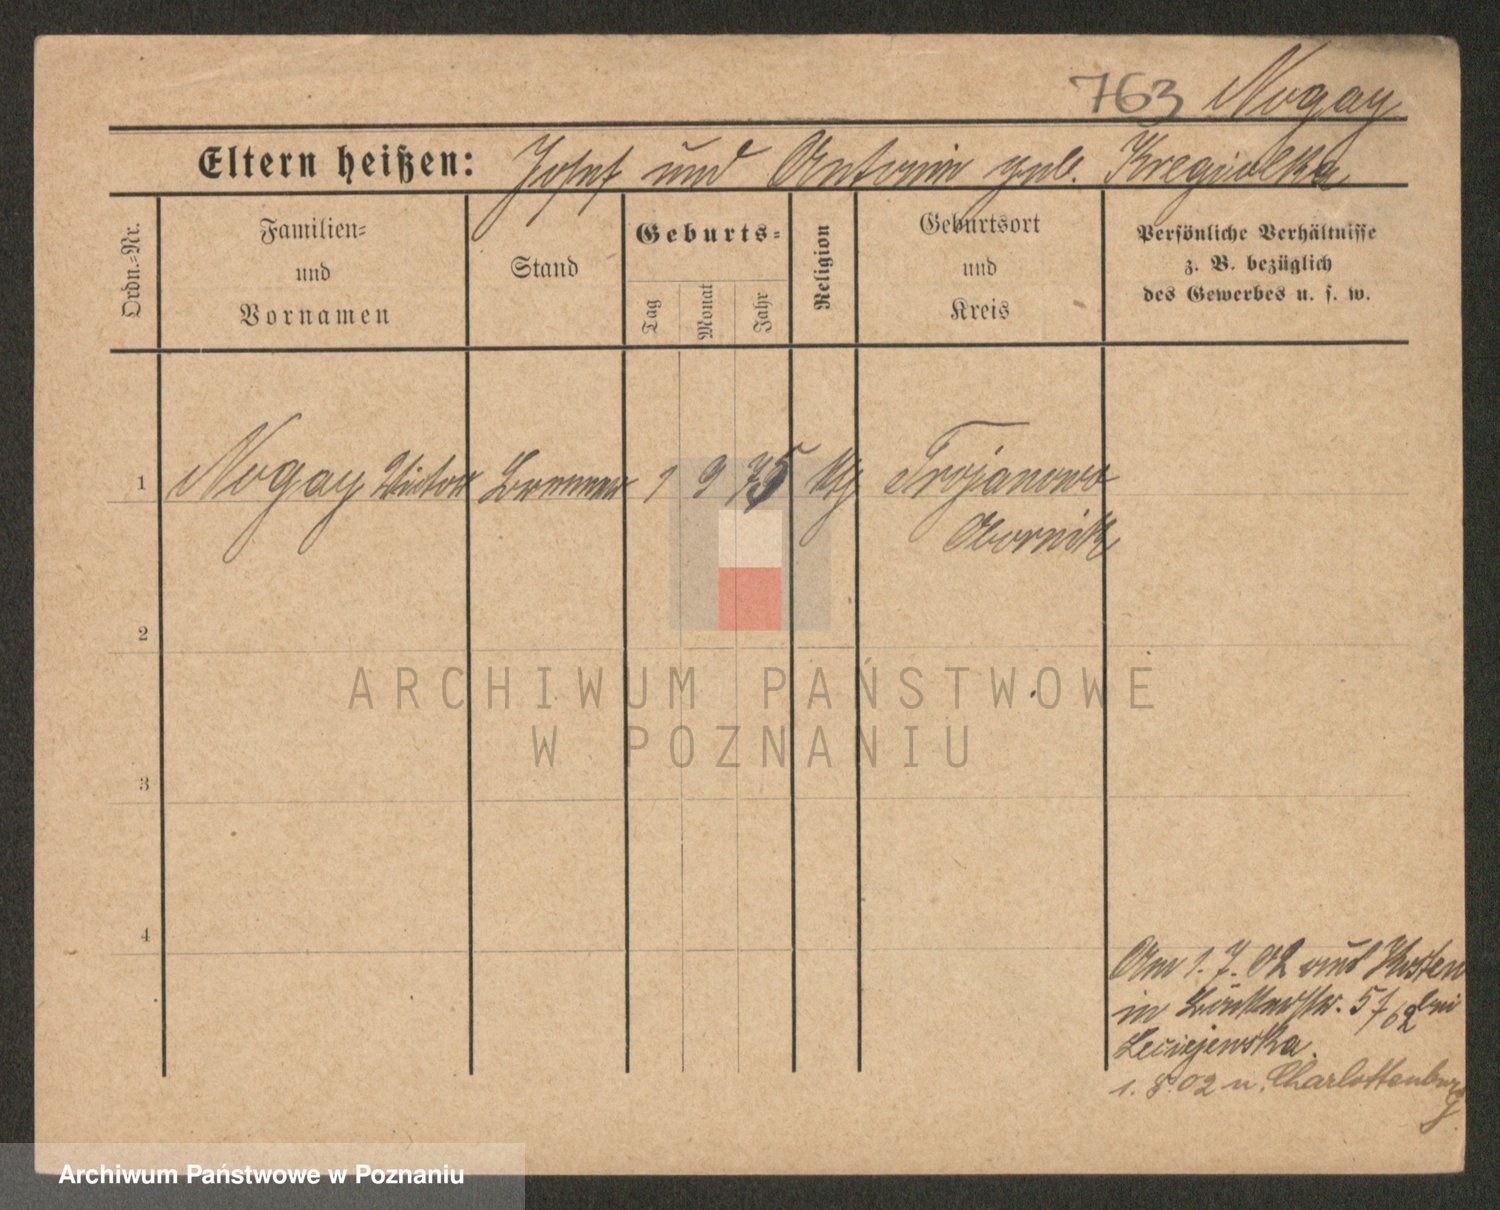 763 Nogay
Eltern heißen: Josef und Antonin geb. Kregielska
Ordn.-Nr.
Familien-
und
Vornamen
Stand
Geburts-
Tag
Monat
Jahr
Religion
Geburtsort
und
Kreis
Persönliche Verhältnisse
z. B. bezüglich
des Gewerbes u. s. w.
1 Nogay Victor 1 9 75 ktg Trojanowo
Obornik
2
3
4
Am 1. 7. 02 aus Kosten
in 57/62 bei
Leciejewska.
1. 8. 02 n. Charlottenburg
ARCHIWUM PAŃSTWOWE
W POZNANIU
Archiwum Państwowe w Poznaniu